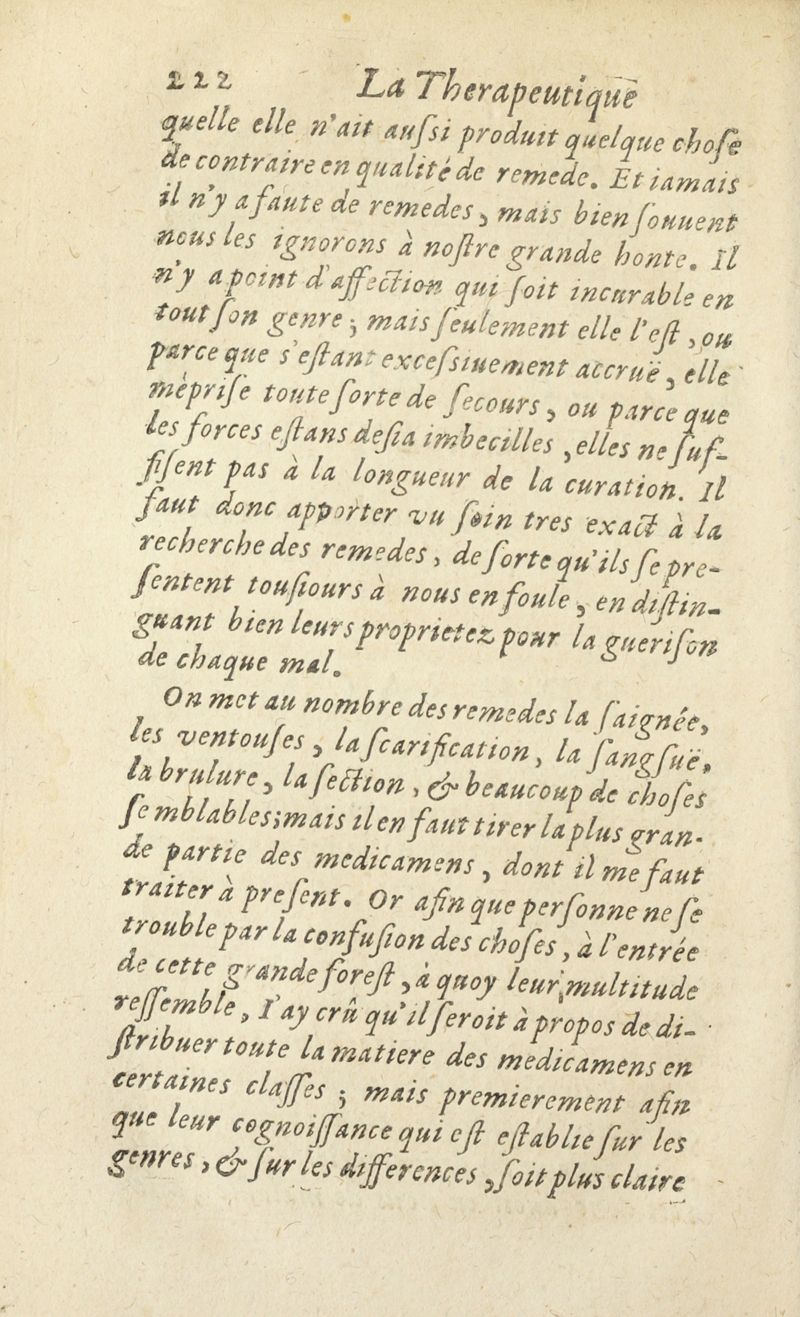 222 La Therapeutique
quelle elle n'ait aussi produit quelque chose
de contraire en qualité de remede. Et iamais
il n'y a faute de remedes, mais bien souuent
nous les ignorons à nostre grande honte. Il
n'y a point d'affection qui soit incurable en
tout son genre; mais seulement elle l'est, ou
parce que s'estant excessiuement accruë, elle
méprise toute sorte de secours, ou parce que
les forces estans desia imbecilles, elles ne suf-
fisent pas à la longueur de la curation. Il
faut donc apporter vn soin tres exact à la
recherche des remedes, de sorte qu'ils se pre-
sentent tousiours à nous en foule, en distin-
guant bien leurs proprietez pour la guerison
de chaque mal.
On met au nombre des remedes la saignée,
les ventouses, la scarification, la sangsuë,
la brulure, la section, & beaucoup de choses
semblables; mais il en faut tirer la plus gran-
de partie des medicamens, dont il me faut
traiter à present. Or afin que personne ne se
trouble par la confusion des choses, à l'entrée
de cette grande forest, à quoy leur multitude
ressemble, I'ay crû qu'il seroit à propos de di-
stribuer toute la matiere des medicamens en
certaines classes; mais premierement afin
que leur cognoissance qui est establie sur les
genres, & sur les differences, soit plus claire